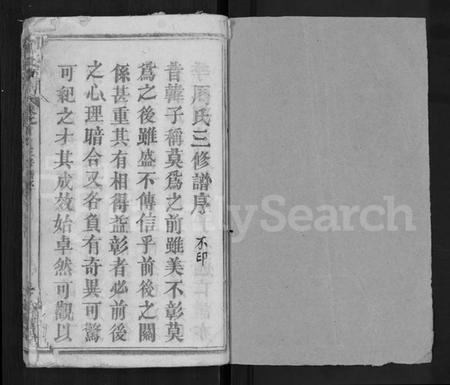 周氏三修譜序
不印
昔韓子稱莫爲之前雖美不彰莫
爲之後雖盛不傳信乎前後之關
係甚重其有相得益彰者必前後
之心理暗合又各負有奇異可驚
可紀之才其成效始卓然可觀以
FamilySearch